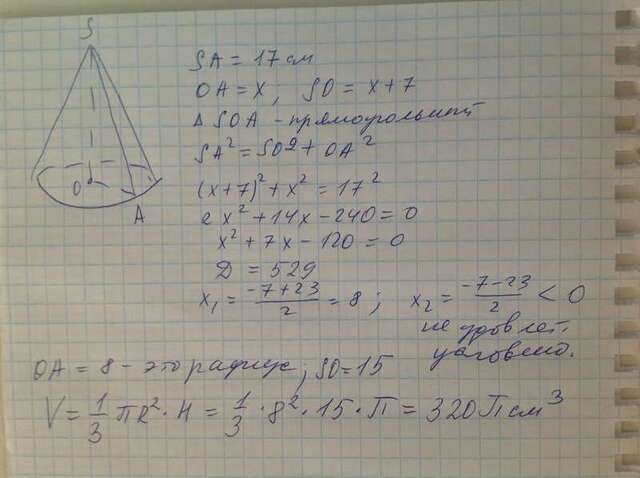 S
O
A
SA = 17 см
OA = x; SO = x+7
Δ SOA - прямоугольный
SA² = SO² + OA²
(x+7)² + x² = 17²
2x² + 14x - 240 = 0
x² + 7x - 120 = 0
D = 529
x₁ = (-7+23)/2 = 8; x₂ = (-7-23)/2 < 0
не удовлет.
условию.
OA = 8 - это радиус; SO = 15
V = 1/3 πR² · H = 1/3 · 8² · 15 · П = 320 П см³